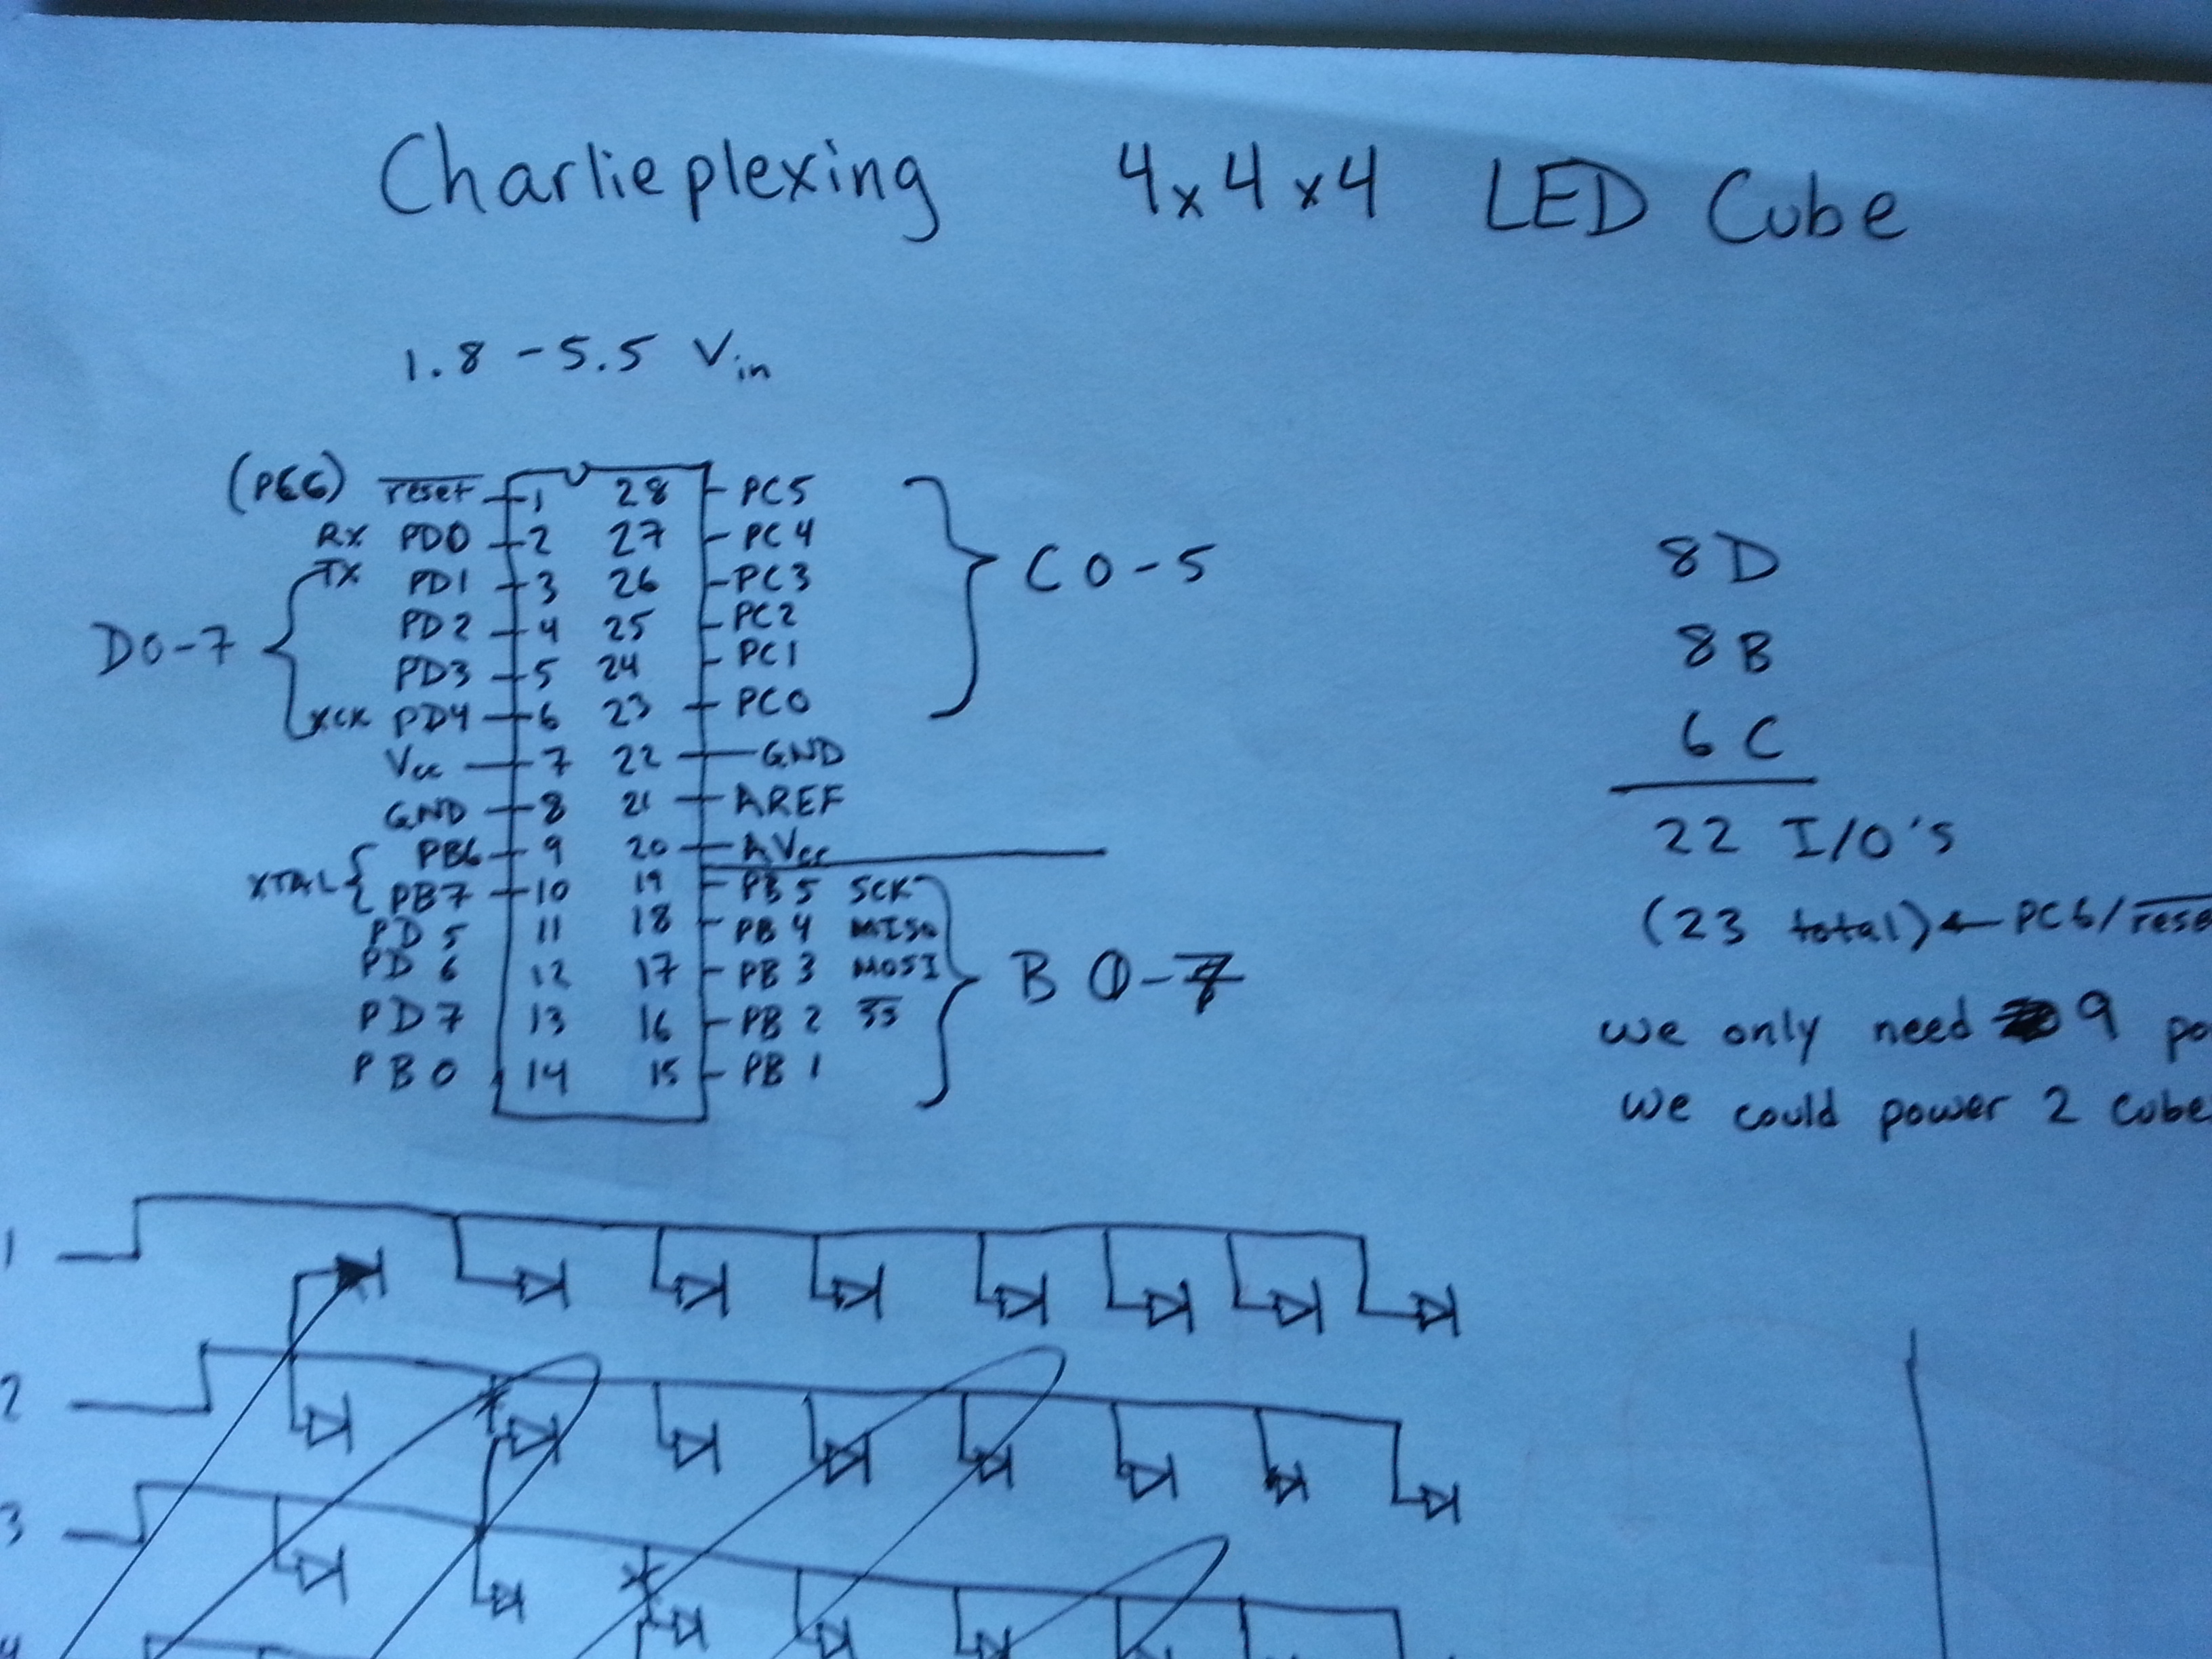 Charlieplexing 4x4x4 LED Cube
1.8 - 5.5 Vin
(PC6) reset 1 28 PC5
RX PD0 2 27 PC4
TX PD1 3 26 PC3
PD2 4 25 PC2
PD3 5 24 PC1
XCK PD4 6 23 PC0
Vcc 7 22 GND
GND 8 21 AREF
PB6 9 20 AVcc
XTAL PB7 10 19 PB5 SCK
PD5 11 18 PB4 MISO
PD6 12 17 PB3 MOSI
PD7 13 16 PB2 SS
PB0 14 15 PB1
D0-7
C0-5
B0-7
8D
8B
6C
22 I/O's
(23 total) ← PC6/rese
we only need 9 po
we could power 2 cube
1
2
3
4